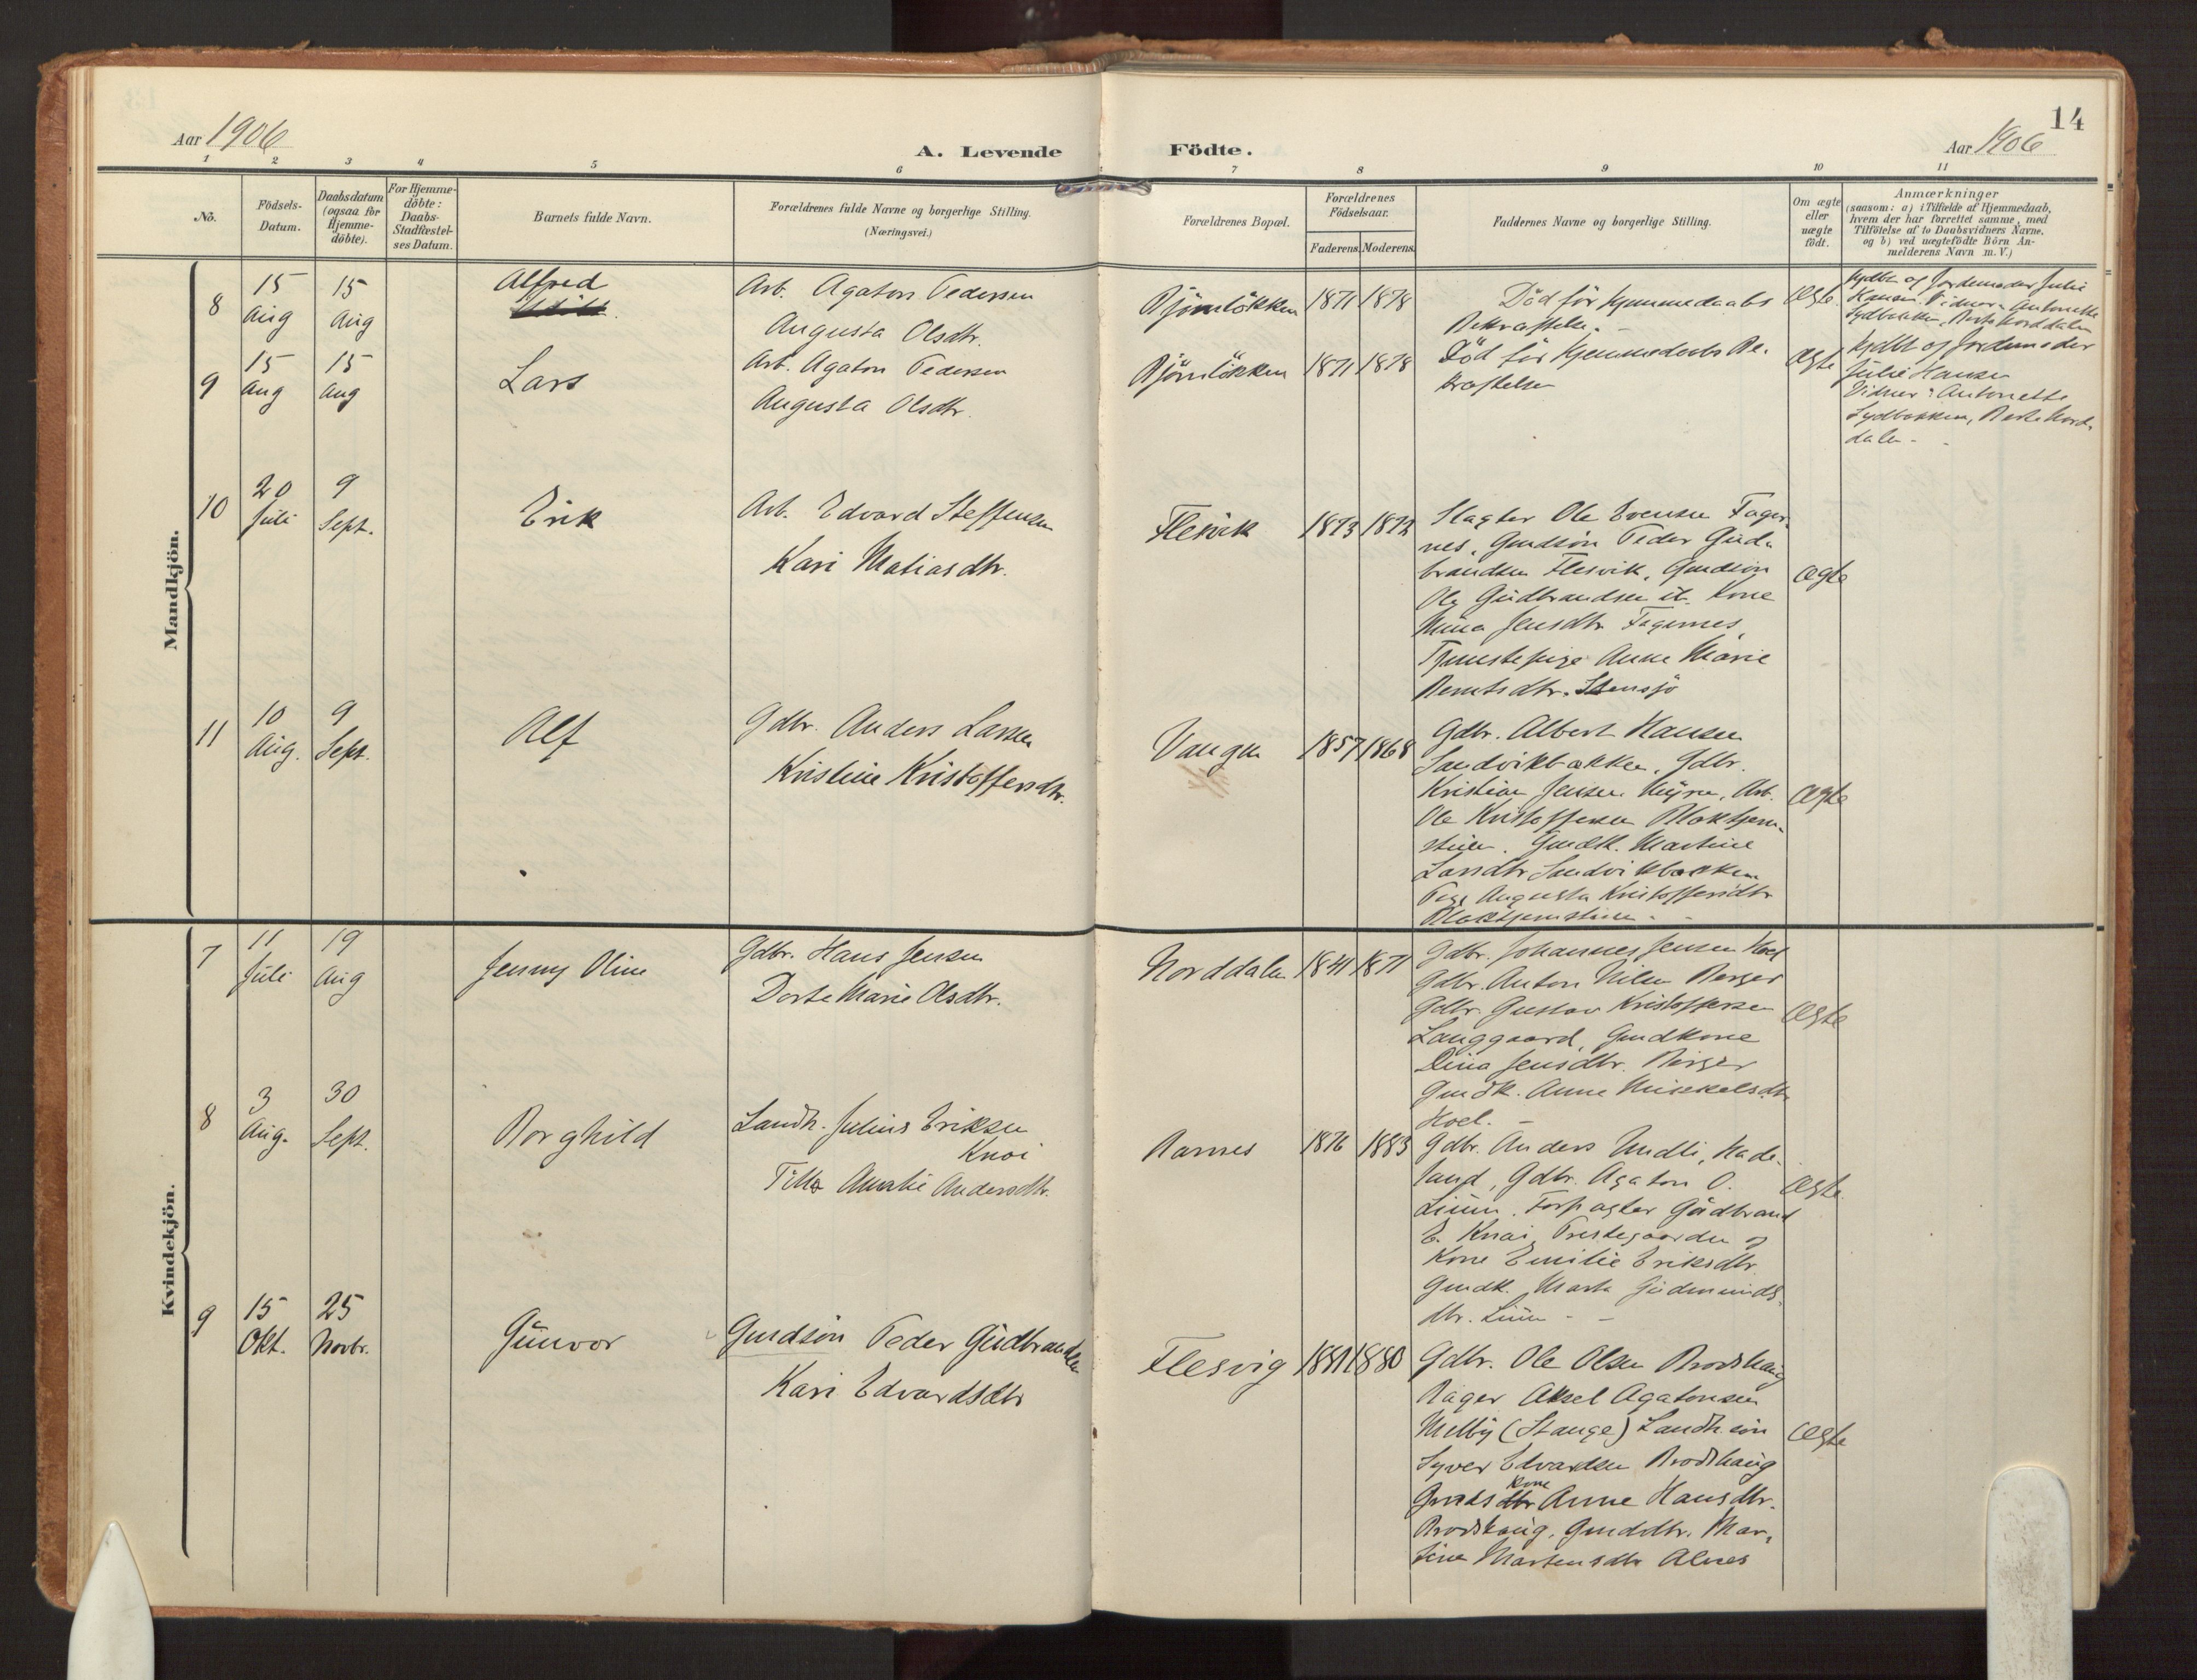 14
Aar 1906
A. Levende Födte.
Aar 1906
1 2 3 4 5 6 7 8 9 10 11
No.
Födsels-
Datum.
Daabsdatum
(ogsaa for
Hjemme-
döbte).
For Hjemme-
döbte:
Daabs-
Stadfæstel-
ses Datum.
Barnets fulde Navn.
Forældrenes fulde Navne og borgerlige Stilling.
(Næringsvei.)
Forældrenes Bopæl.
Forældrenes
Födselsaar.
Faderens. Moderens.
Faddernes Navne og borgerlige Stilling.
Om ægte
eller
uægte
födt.
Anmærkninger
(saasom: a) i Tilfælde af Hjemmedaab,
hvem der har forrettet samme, med
Tilföielse af to Daabsvidners Navne,
og b) ved uægtefödte Börn An-
melderens Navn m. V.)
Mandkjön.
8
15
Aug
15
Aug
Alfred
Arb. Agaton Pedersen
Augusta Olsdtr.
Björnlökken
1871 1878
Död för hjemmedaabs
Bekræftelse.
Ægte.
hjdbt af Jordemoder Julie
Hansen. Vidner: Antonette
Sydbakken, Berte Norddalen
9
15
Aug
15
Aug
Lars
Arb. Agaton Pedersen
Augusta Olsdtr.
Björnlökken
1871 1878
Död för hjemmedaabs Be-
kræftelse
Ægte
hjdbt af Jordemoder
Julie Hansen
Vidner: Antonette
Sydbakken, Berte Nord-
dalen
10
20
Juli
9
Sept.
Erik
Arb. Edvard Steffensen
Kari Matiasdtr.
Flesvik
1873 1872
Slagter Ole Evensen Fager-
nes, Gmdsön Peder Gud-
brandsen Flesvik, Gmdsön
Ole Gudbrandsen it. Kone
Mina Jensdtr Fagernes,
Tjenestepige Anne Marie
Berntsdtr. Stensjö
Ægte
11
10
Aug.
9
Sept.
Alf
Gdbr. Anders Larsen
Kristine Kristoffersdtr.
Vangen
1857 1868
Gdbr. Albert Hansen
Sandvikbakken, Gdbr.
Kristian Jensen Myren, Arb.
Ole Kristoffersen Bloktjern-
stuen. Gmdk. Martine
Larsdtr Sandvikbakken
Pige Augusta Kristoffersdtr
Bloktjernstuen
Ægte
Kvindekjön.
7
11
Juli
19
Aug
Jenny Oline
Gdbr. Hans Jensen
Dorte Marie Olsdtr.
Norddalen
1841 1871
Gdbr. Johannes Jensen Hoel
Gdbr. Anton Nilsen Berger
Gdbr. Gustav Kristoffersen
Langgaard, Gmdkone
Dina Jensdtr. Berger
Gmdk. Anne Mikkelsdtr
Hoel.
Ægte
8
3
Aug.
30
Sept.
Borghild
Landh. Julius Eriksen
Knai
Tilla Amalie Andersdtr.
Barnes
1876 1883
Gdbr. Anders Undli, Hade-
land, Gdbr. Agaton O.
Linn. Forpagter Gudbrand
E. Knai, Prestegaarden og
Kone Emilie Eriksdtr
Gmdk. Marta Gudmunds-
dtr. Linn
Ægte
9
15
Okt.
25
Novbr.
Gunvor
Gmdsön Peder Gudbrandsen
Kari Edvardsdtr
Flesvig
1881 1880
Gdbr. Ole Olsen Brodshaug
Bager Aksel Agatonsen
Melby (Stange) Landh.sön
Syver Edvardsen Brodshaug
Gmds kone Anne Hansdtr.
Brodshaug. Gmddtr. Mar-
tine Martensdtr Alnes
Ægte